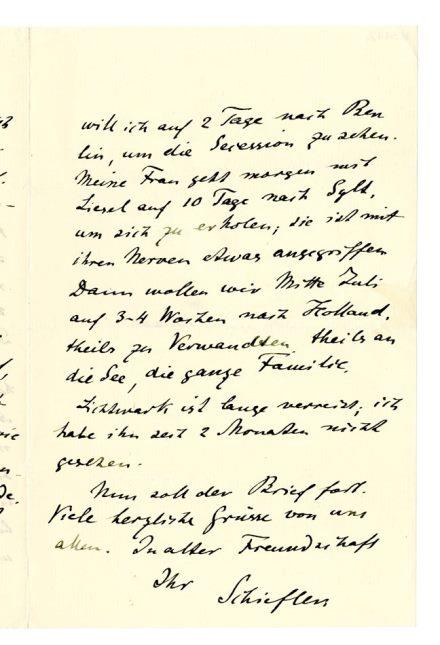 will ich auf 2 Tage nach Ber
lin, um die Secession zu sehen.
Meine Frau geht morgen mit
Liesel auf 10 Tage nach Sylt,
um sich zu erholen; sie ist mit
ihren Nerven etwas angegriffen
Dann wollen wir Mitte Juli
auf 3-4 Wochen nach Holland,
theils zu Verwandten theils an
die See, die ganze Familie.
Lichtwark ist lange verreist; ich
habe ihn seit 2 Monaten nicht
gesehen.
Nun soll der Brief fort.
Viele herzliche Grüsse von uns
allen. In alter Freundschaft
Ihr
Schiefler